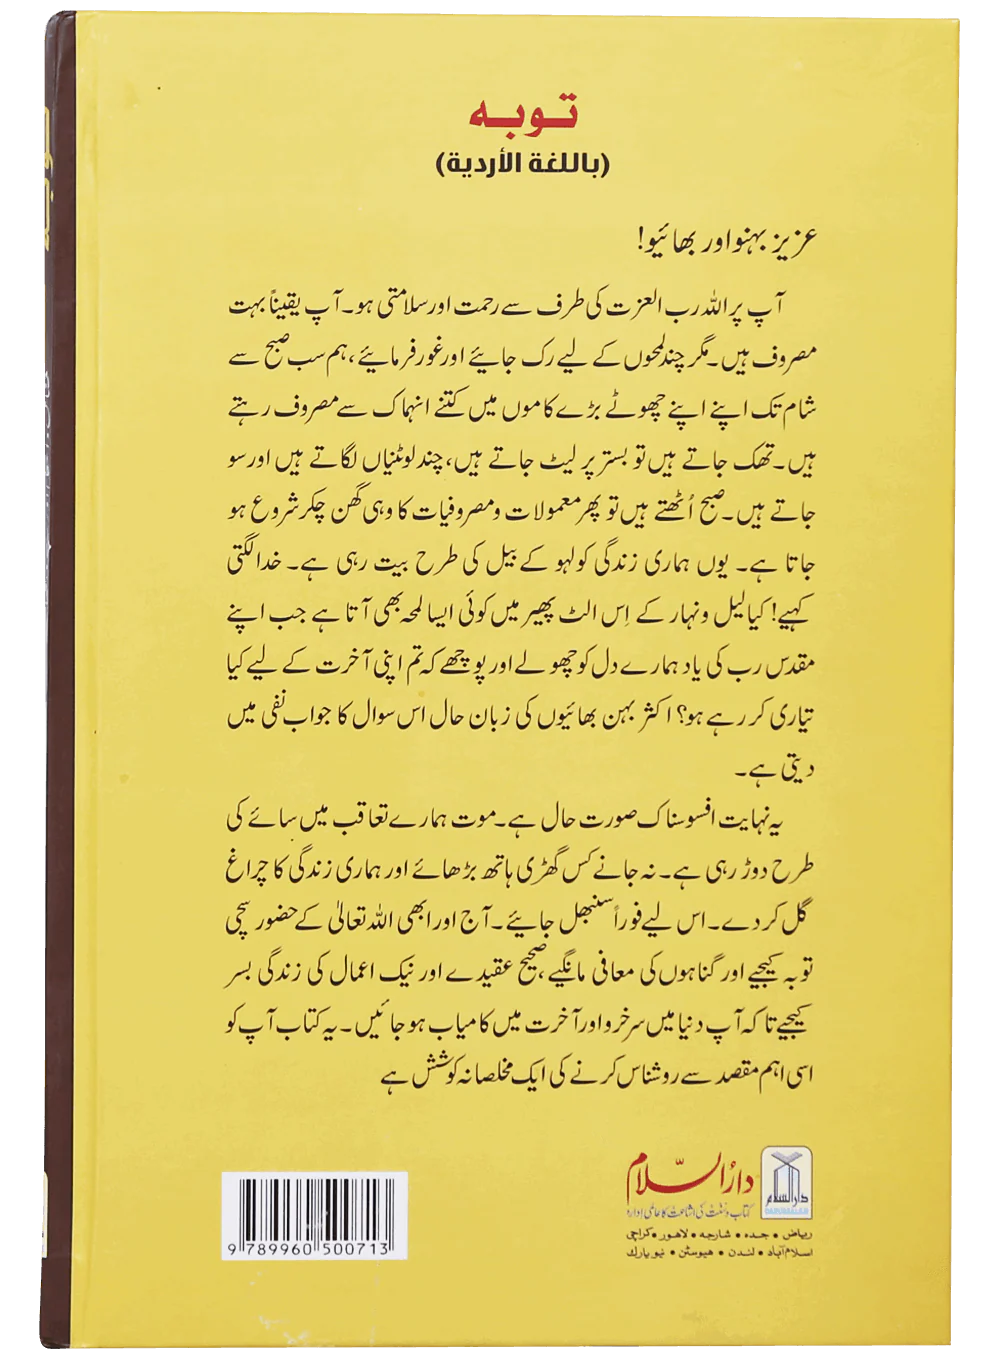 توبه
(باللغة الأردية)
عزیز بہنو اور بھائیو!
آپ پر اللہ رب العزت کی طرف سے رحمت اور سلامتی ہو۔ آپ یقیناً بہت
مصروف ہیں۔ مگر چند لمحوں کے لیے رک جائیے اور غور فرمائیے، ہم سب صبح سے
شام تک اپنے اپنے چھوٹے بڑے کاموں میں کتنے انہماک سے مصروف رہتے
ہیں۔ تھک جاتے ہیں تو بستر پر لیٹ جاتے ہیں، چند لوٹنیاں لگاتے ہیں اور سو
جاتے ہیں۔ صبح اُٹھتے ہیں تو پھر معمولات و مصروفیات کا وہی گھن چکر شروع ہو
جاتا ہے۔ یوں ہماری زندگی کولہو کے بیل کی طرح بیت رہی ہے۔ خدا لگتی
کہیے! کیا لیل و نہار کے اِس الٹ پھیر میں کوئی ایسا لمحہ بھی آتا ہے جب اپنے
مقدس رب کی یاد ہمارے دل کو چھو لے اور پوچھے کہ تم اپنی آخرت کے لیے کیا
تیاری کر رہے ہو؟ اکثر بہن بھائیوں کی زبان حال اس سوال کا جواب نفی میں
دیتی ہے۔
یہ نہایت افسوسناک صورت حال ہے۔ موت ہمارے تعاقب میں سائے کی
طرح دوڑ رہی ہے۔ نہ جانے کس گھڑی ہاتھ بڑھائے اور ہماری زندگی کا چراغ
گل کر دے۔ اس لیے فوراً سنبھل جائیے۔ آج اور ابھی اللہ تعالیٰ کے حضور سچی
توبہ کیجیے اور گناہوں کی معافی مانگیے، صحیح عقیدے اور نیک اعمال کی زندگی بسر
کیجیے تا کہ آپ دنیا میں سرخرو اور آخرت میں کامیاب ہو جائیں۔ یہ کتاب آپ کو
اسی اہم مقصد سے روشناس کرنے کی ایک مخلصانہ کوشش ہے
دارالسلام
دارُالسّلام
DARUSSALAM
کتاب و سنت کی اشاعت کا عالمی ادارہ
ریاض • جدہ • شارجہ • لاہور • کراچی
اسلام آباد • لندن • ھیوسٹن • نیو یارک
9 789960 500713